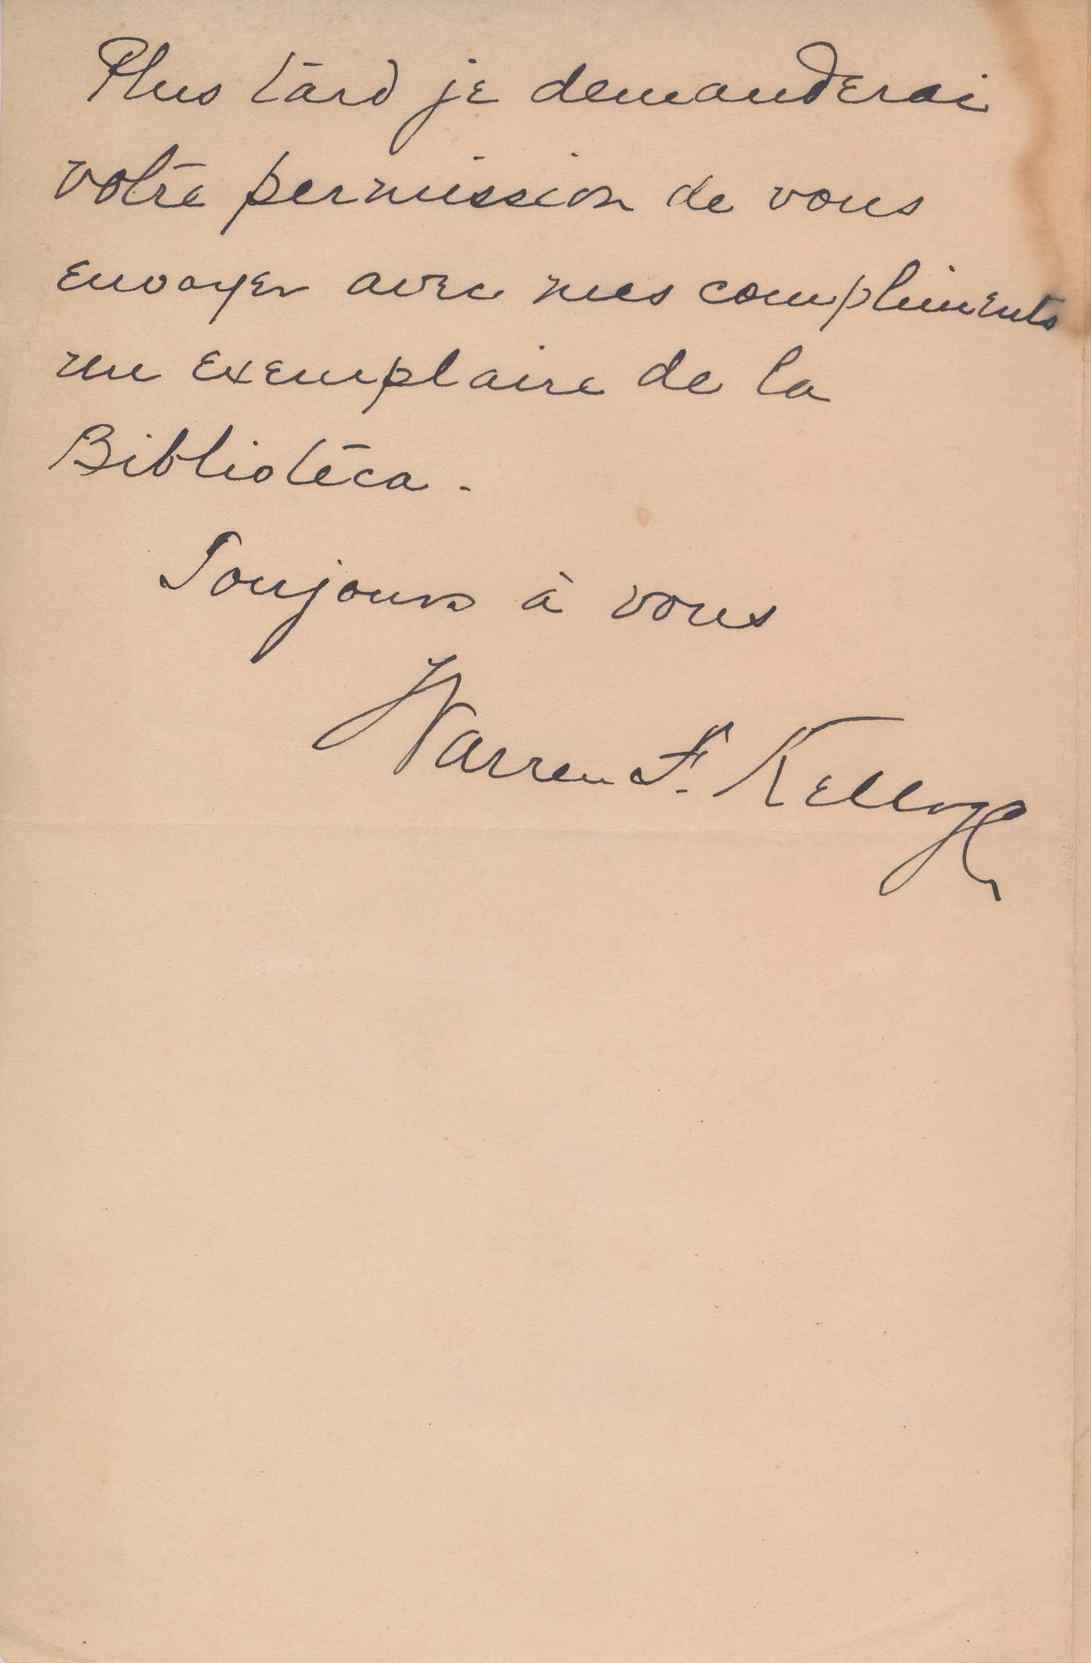 Plus tard je demanderai
votre permission de vous
envoyer avec mes compliments
un exemplaire de la
Biblioteca.
Toujours à vous
Warren F. Kellogg